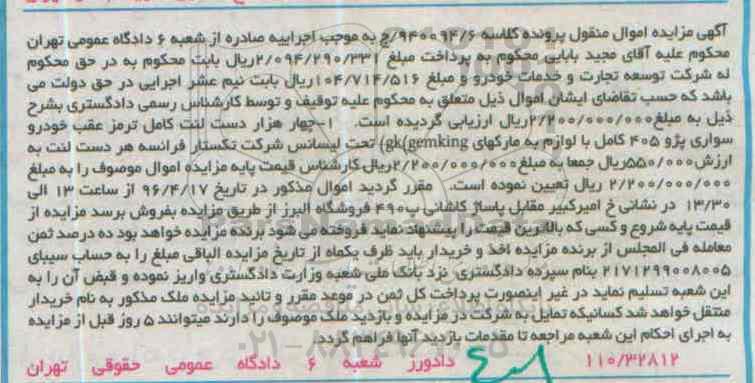 آگهی مزایده اموال منقول پرونده کلاسه ۹۴۰۰۹۴/۶/ج به موجب اجراییه صادره از شعبه ۶ دادگاه عمومی تهران
محکوم علیه آقای مجید بابایی محکوم به پرداخت مبلغ ۲/۰۹۴/۲۹۰/۳۳۱ریال بابت محکوم به در حق محکوم
له شرکت توسعه تجارت و خدمات خودرو و مبلغ ۱۰۴/۷۱۴/۵۱۶ریال بابت نیم عشر اجرایی در حق دولت می
باشد که حسب تقاضای ایشان اموال ذیل متعلق به محکوم علیه توقیف و توسط کارشناس رسمی دادگستری بشرح
ذیل به مبلغ۲/۲۰۰/۰۰۰/۰۰۰ریال ارزیابی گردیده است. ۱-چهار هزار دست لنت کامل ترمز عقب خودرو
سواری پژو ۴۰۵ کامل با لوازم به مارکهای gk(gemking) تحت لیسانس شرکت تکستار فرانسه هر دست لنت به
ارزش۵۵۰/۰۰۰ریال جمعا به مبلغ۲/۲۰۰/۰۰۰/۰۰۰ریال.کارشناس قیمت پایه مزایده اموال موصوف را به مبلغ
۲/۲۰۰/۰۰۰/۰۰۰ ریال تعیین نموده است. مقرر گردید اموال مذکور در تاریخ ۹۶/۴/۱۷ از ساعت ۱۳ الی
۱۳/۳۰ در نشانی خ امیرکبیر مقابل پاساژ کاشانی پ۴۹۰ فروشگاه البرز از طریق مزایده بفروش برسد مزایده از
قیمت پایه شروع و کسی که بالاترین قیمت را پیشنهاد نماید فروخته می شود برنده مزایده خواهد بود ده در صد ثمن
معامله فی المجلس از برنده مزایده اخذ و خریدار باید ظرف یکماه از تاریخ مزایده الباقی مبلغ را به حساب سیبای
۲۱۷۱۲۹۹۰۰۸۰۰۵ بنام سپرده دادگستری نزد بانک ملی شعبه وزارت دادگستری واریز نموده و قبض آن را به
این شعبه تسلیم نماید در غیر اینصورت پرداخت کل ثمن در موعد مقرر و تائید مزایده ملک مذکور به نام خریدار
منتقل خواهد شد کسانیکه تمایل به شرکت در مزایده و بازدید ملک موصوف را دارند میتوانند ۵ روز قبل از مزایده
به اجرای احکام این شعبه مراجعه تا مقدمات بازدید آنها فراهم گردد.
۱۱۰/۳۲۸۱۲ دادورز شعبه ۶ دادگاه عمومی حقوقی تهران